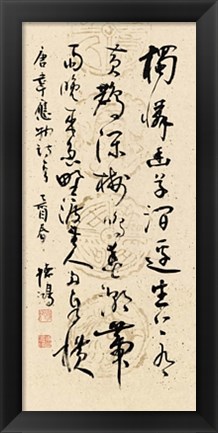 獨憐幽草澗邊生上有
黃鸝深樹鳴春潮帶
雨晚來急野渡無人舟自橫
唐韋應物詩 乙酉春 鴻